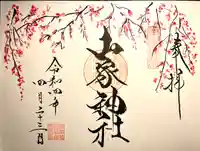 奉拝
山家神社
令和四年
四月二十三日